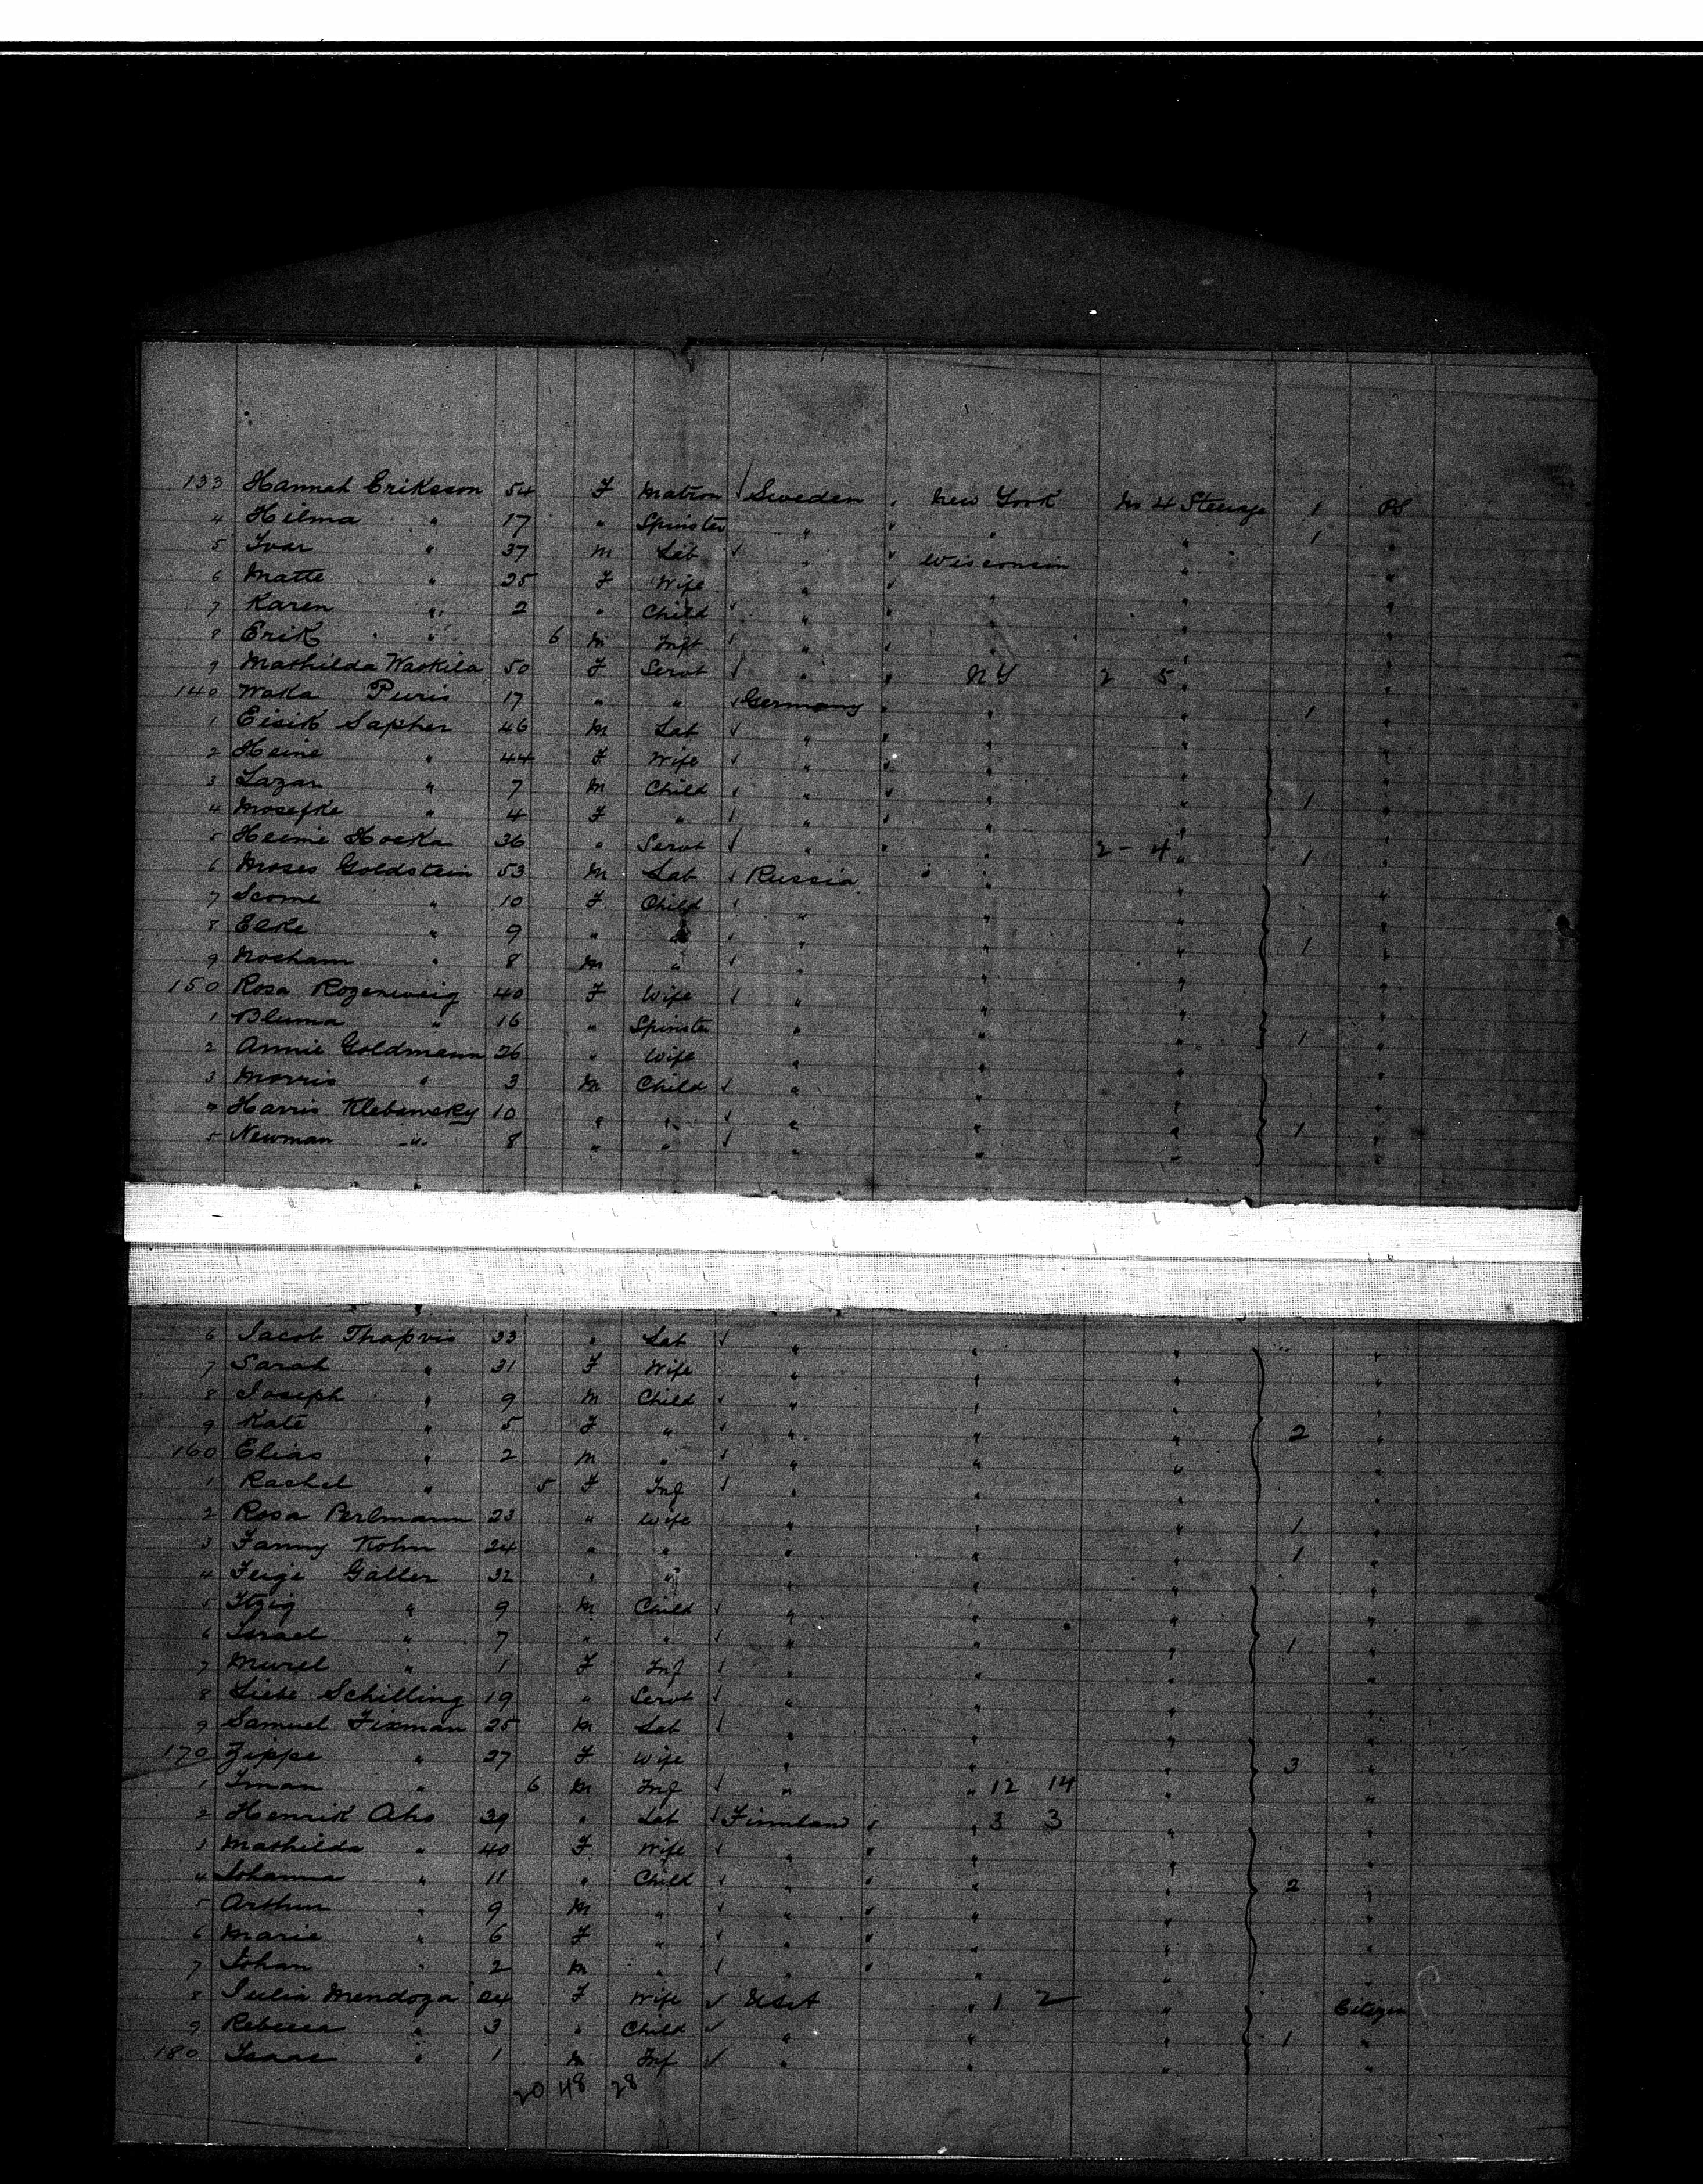 133 Hannah Eriksson 54 F Matron Sweden New York No 4 Steerage 1 PS
4 Hilma " 17 " Spinster " " " 1 "
5 Ivar " 37 M Lab " Wisconsin " "
6 Matte " 25 F Wife " " " "
7 Karen " 2 " Child " " " "
8 Erik " 6 M Inft " " " "
9 Mathilda Waskila 50 F Servt " NY 2 5 " "
140 Waka Puris 17 " " Germany " " 1 "
1 Eisik Sapher 46 M Lab " " " "
2 Heine " 44 F Wife " " " "
3 Lazar " 7 M Child " " " 1 "
4 Mosefke " 4 F " " " " "
5 Heinie Hocka 36 " Servt " " 2 - 4 " 1 "
6 Moses Goldstein 53 M Lab Russia " " "
7 Scome " 10 F Child " " " "
8 Elke " 9 " " " " " 1 "
9 Nocham " 8 M " " " " "
150 Rosa Rozenweig 40 F Wife " " " "
1 Bluma " 16 " Spinster " " " 1 "
2 Annie Goldmann 26 " Wife " " " "
3 Morris " 3 M Child " " " "
4 Harris Klebansky 10 " " " " " 1 "
5 Newman " 8 " " " " " "
6 Jacob Thapvis 33 " Lab " " " "
7 Sarah " 31 F Wife " " " "
8 Joseph " 9 M Child " " " "
9 Kate " 5 F " " " " 2 "
160 Elias " 2 M " " " " "
1 Rachel " 5 F Inf " " " "
2 Rosa Perlmann 23 " Wife " " " 1 "
3 Fanny Kohn 24 " " " " " 1 "
4 Feige Galler 32 " " " " " "
5 Itzig " 9 M Child " " " "
6 Israel " 7 " " " " " 1 "
7 Murel " 1 F Inf " " " "
8 Liebe Schilling 19 " Servt " " " "
9 Samuel Fixman 25 M Lab " " " "
170 Zippe " 27 F Wife " " " 3 "
1 Iman " 6 M Inf " " 12 14 " "
2 Henrik Aho 39 " Lab Finnland " 3 3 " "
3 Mathilda " 40 F Wife " " " "
4 Johanna " 11 " Child " " " 2 "
5 Arthur " 9 M " " " " "
6 Marie " 6 F " " " " "
7 Johan " 2 M " " " " "
8 Julia Mendoza 24 F Wife USA " 1 2 " Citizen
9 Rebecca " 3 " Child " " " 1 "
180 Isaac " 1 M Inf " " " "
20 48 28